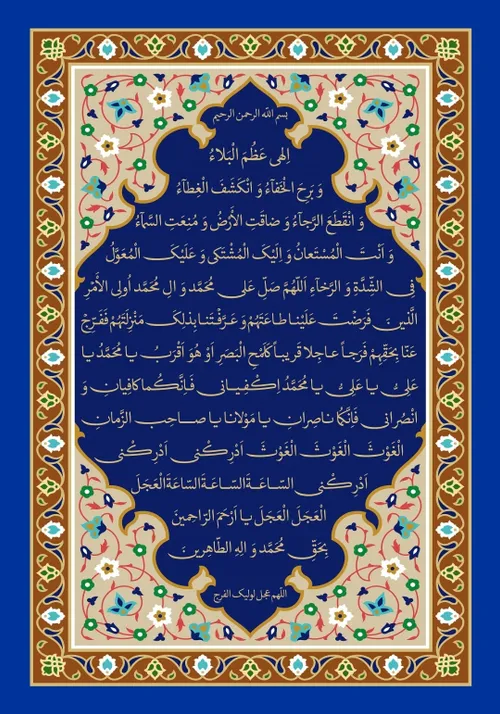 بسم الله الرحمن الرحیم
اِلهی عَظُمَ الْبَلاءُ
وَ بَرِحَ الْخَفآءُ وَ انْکَشَفَ الْغِطآءُ
وَ انْقَطَعَ الرَّجآءُ وَ ضاقَتِ الْأَرْضُ وَ مُنِعَتِ السَّمآءُ
وَ اَنْتَ الْمُسْتَعانُ وَ اِلَیْکَ الْمُشْتَکی وَ عَلَیْکَ الْمُعَوَّلُ
فِی الشِّدَّةِ وَ الرَّخآءِ اَللّهُمَّ صَلِّ عَلی مُحَمَّد وَ الِ مُحَمَّد اُولِی الْأَمْرِ
الَّذینَ فَرَضْتَ عَلَیْنا طاعَتَهُمْ وَ عَرَّفْتَنا بِذلِکَ مَنْزِلَتَهُمْ فَفَرِّجْ
عَنّا بِحَقِّهِمْ فَرَجاً عاجِلا قَریباً کَلَمْحِ الْبَصَرِ اَوْ هُوَ اَقْرَبُ یا مُحَمَّدُ یا
عَلِیُّ یا عَلِیُّ یا مُحَمَّدُ اِکْفِیانی فَاِنَّکُما کافِیانِ وَ
انْصُرانی فَاِنَّکُما ناصِرانِ یا مَوْلانا یا صاحِبَ الزَّمانِ
الْغَوْثَ الْغَوْثَ الْغَوْثَ اَدْرِکْنی اَدْرِکْنی
اَدْرِکْنی السّاعَةَ السّاعَةَ السّاعَةَ الْعَجَلَ
الْعَجَلَ الْعَجَلَ یا اَرْحَمَ الرّاحِمینَ
بِحَقِّ مُحَمَّد وَ الِهِ الطّاهِرینَ
اللهم عجل لولیک الفرج